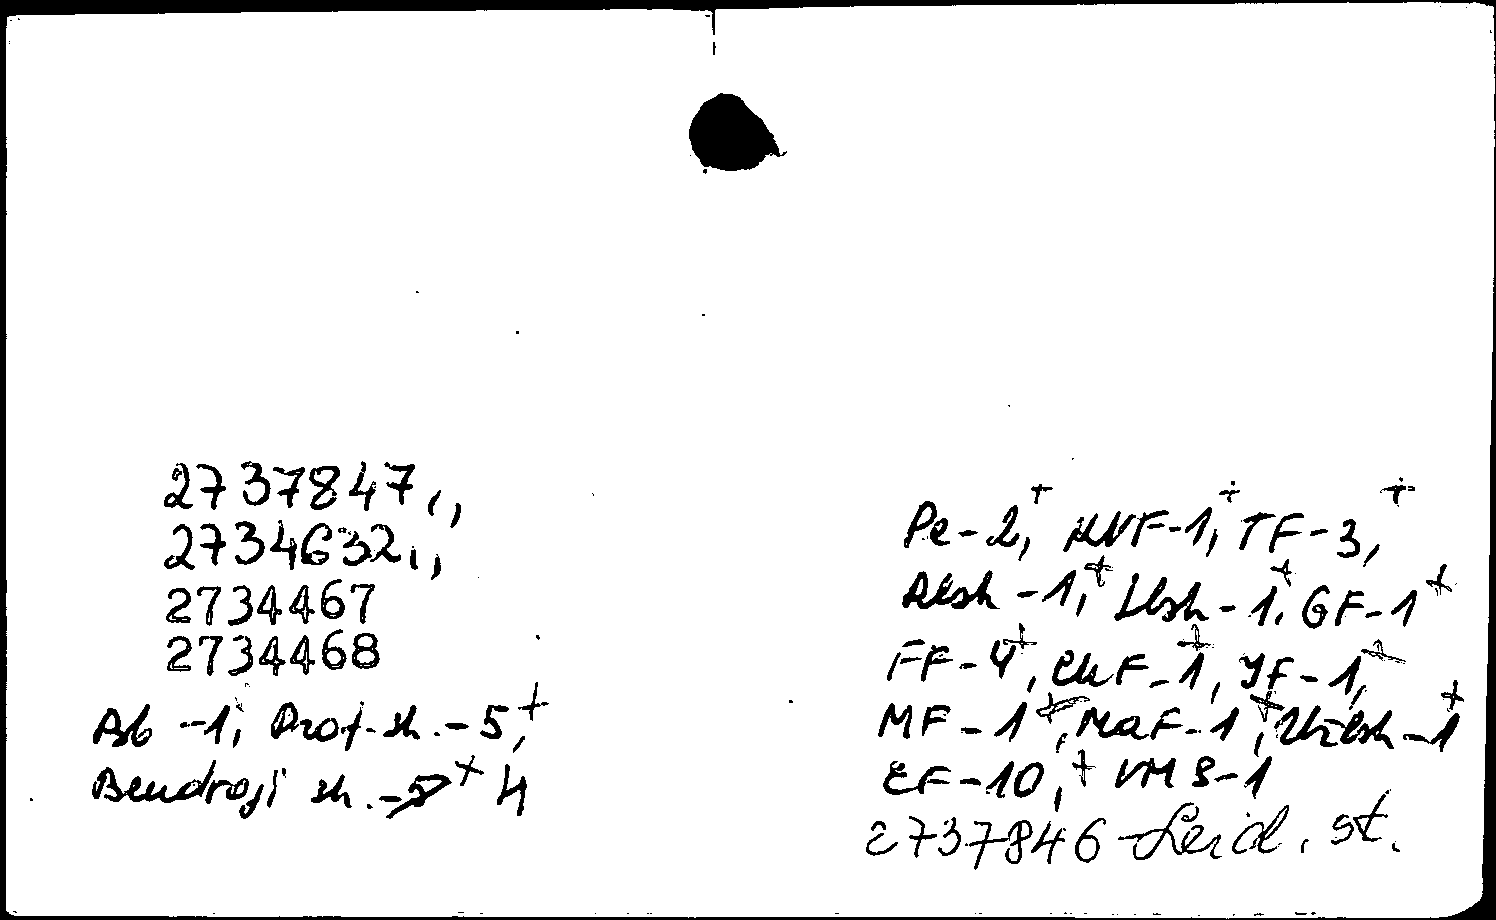 2737847,,
2734632,,
2734467
2734468
Ab -1, Prof. sk. - 5,+
Bendroji sk. -5+ 4
Pe-2,+ KNF-1,+ TF-3,+
Aksk -1,+ Lbsk -1.+ GF-1+
FF-4+, ChF-1+, IF-1,+
MF-1+, MaF-1+, Užsk-1+
EF-10,+ VMS-1
2737846 - Leid. st.